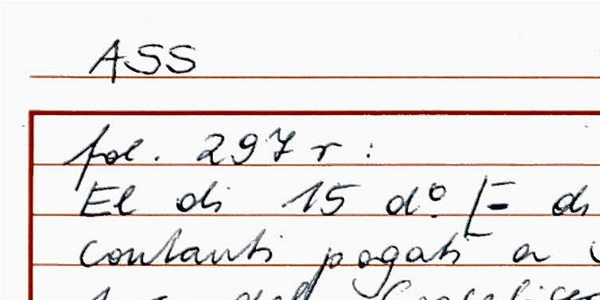 ASS
fol. 297 r :
El di 15 d.º [= di
contanti pagati a